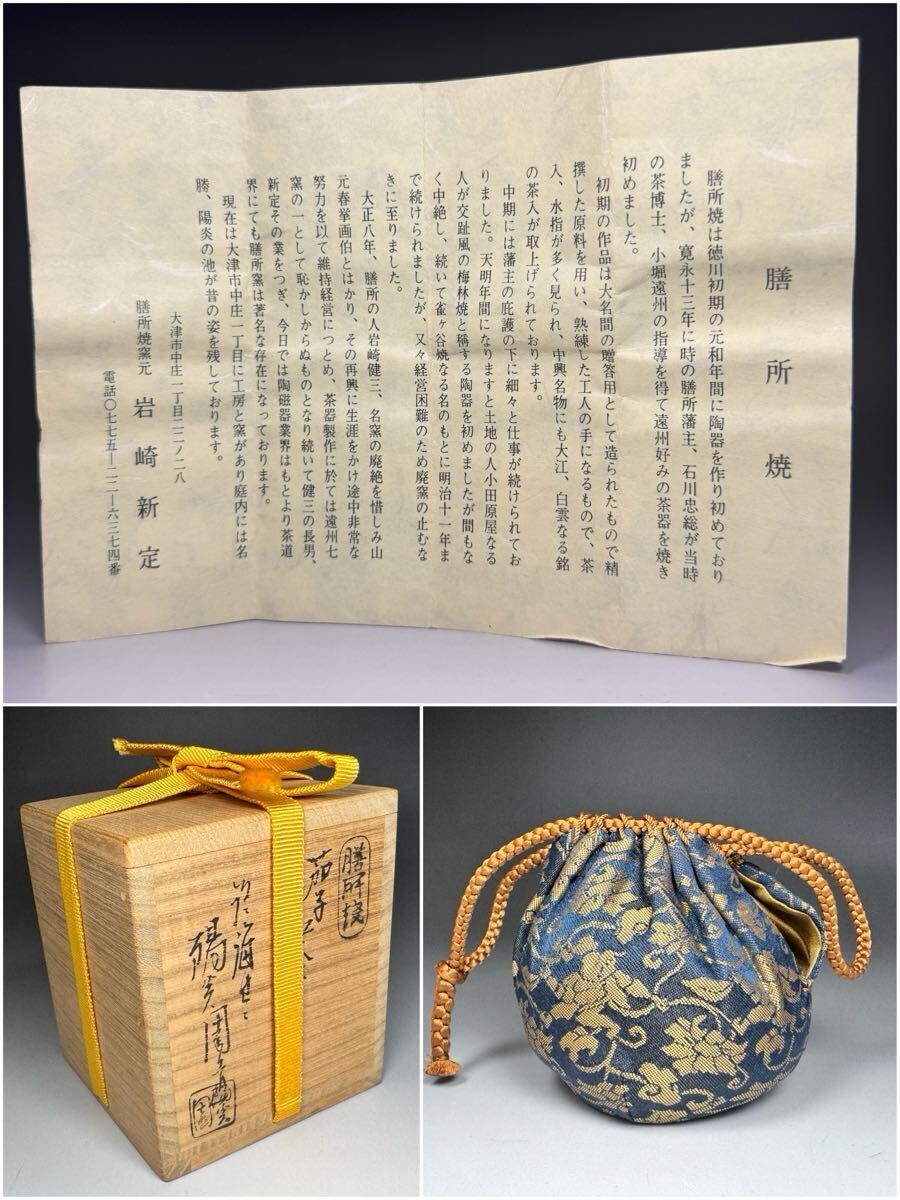 膳所焼
膳所焼は徳川初期の元和年間に陶器を作り初めており
ましたが、寛永十三年に時の膳所藩主、石川忠総が当時
の茶博士、小堀遠州の指導を得て遠州好みの茶器を焼き
初めました。
初期の作品は大名間の贈答用として造られたもので精
撰した原料を用い、熟練した工人の手になるもので、茶
入、水指が多く見られ、中興名物にも大江、白雲なる銘
の茶入が取上げられております。
中期には藩主の庇護の下に細々と仕事が続けられてお
りました。天明年間になりますと土地の人小田原屋なる
人が交趾風の梅林焼と称する陶器を初めましたが間もな
く中絶し、続いて雀ヶ谷焼なる名のもとに明治十一年ま
で続けられましたが、又々経営困難のため廃窯の止むな
きに至りました。
大正八年、膳所の人岩崎健三、名窯の廃絶を惜しみ山
元春挙画伯とはかり、その再興に生涯をかけ途中非常な
努力を以て維持経営につとめ、茶器製作に於ては遠州七
窯の一として恥かしからぬものとなり続いて健三の長男、
新定その業をつぎ、今日では陶磁器業界はもとより茶道
界にても膳所窯は著名な存在になっております。
現在は大津市中庄一丁目に工房と窯があり庭内には名
勝、陽炎の池が昔の姿を残しております。
大津市中庄一丁目二二ノ二八
膳所焼窯元 岩崎新定
電話〇七七五―二二―六三七四番
膳所焼
茄子